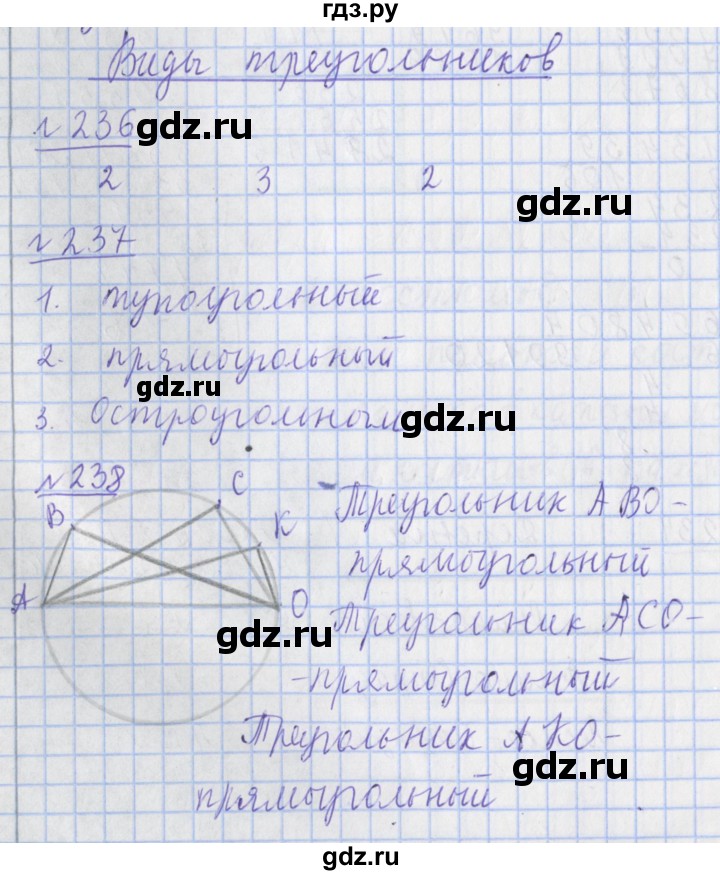 гдз.ру
Виды треугольников
№236 gdz.ru
2 3 2
gdz.ru
№237
1. тупоугольный
2. прямоугольный
gdz.ru
3. Остроугольный gdz.ru
№238
C
B
K
A
O
Треугольник ABO-
прямоугольный
gdz.ru
Треугольник ACO-
-прямоугольный
Треугольник AKO-
gdz.ru
прямоугольный
gdz.ru